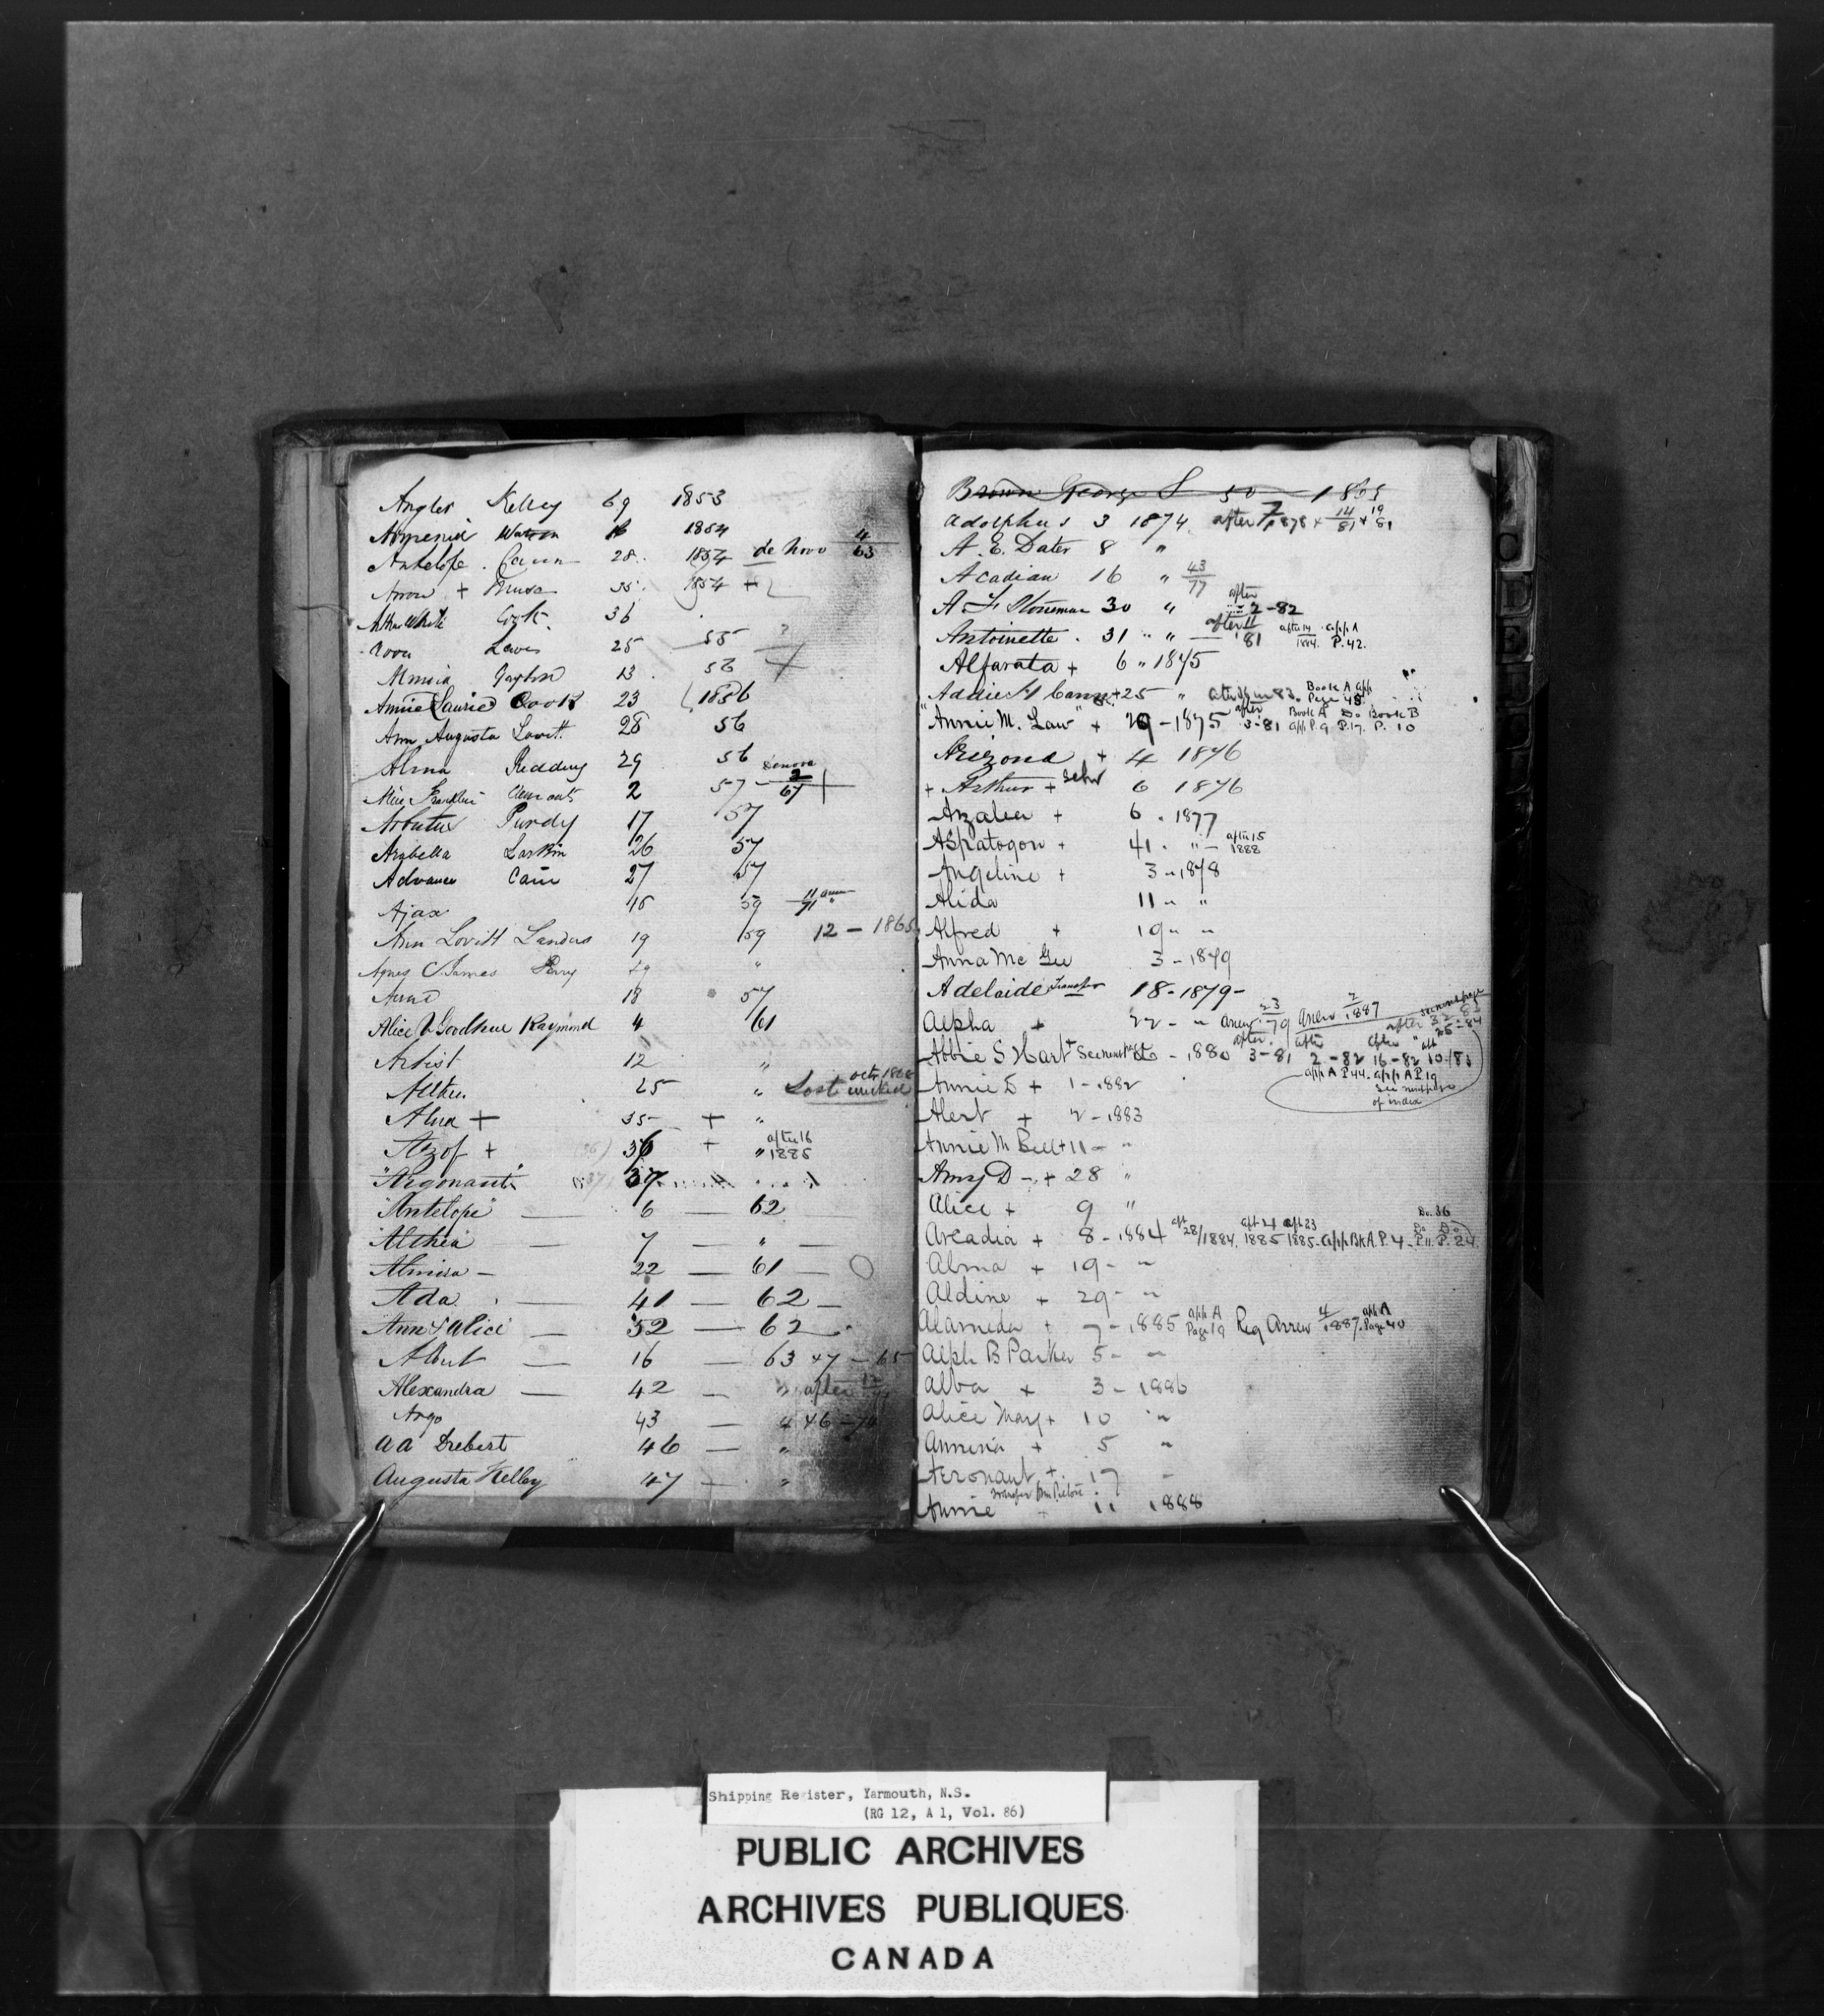 Angler Kelley 69 1853
Armenia Watson 16 1854
Antelope Cann 28 1854 de novo 4/63
Arrow + 35 1854 +
Arthur White Cook 36
Lewis 25 55
13 56
Annie Laurie Cook 23 1856
Ann Augusta Lovitt 28 56
Alma Redding 29 56
Alice Franklin Clements 2 57 denovo 2/67 +
Arbutus Purdy 17 57
Arabella Larkin 26 57
Advance Cain 27 57
Ajax 15 59
Ann Lovitt Landers 19 59 12 - 1865
Agnes C James Perry 29 "
18 57
Alice V Goodhue Raymond 4 61
Artist 12 "
25 " Lost
Alma + 35 + "
Azof + 36 + " after 16 1885
"Argonaut" 37
"Antelope" — 6 — 62
Althea — 7 — " —
Almira — 22 — 61 —
Ada — 41 — 62 —
Ann & Alice — 52 — 62
Albert — 16 — 63 & 7 - 65
Alexandra — 42 — " after
Argo 43 —
A A Drebert 46 — "
Augusta Kelley 47 "
Brown George S 50 1865
Adolphus 3 1874 after 7/1878 & 14/81 & 19/81
A. E. Dater 8 "
Acadian 16 " 43/77
A F Stoneman 30 " after 2-82
Antoinette 31 " " after 11 '81 after 14 1884 App A P. 42.
Alfarata + 6 " 1875
Addie H Cann + 25 " Book A app Page 45
"Annie M. Law" + 29 - 1875 after 3-81 Book A app P. 9 Do P. 17. Book B P. 10
Arizona + 4 1876
+ Arthur + Schr 6 1876
Azalea + 6 . 1877
Aspatogon + 41 . " - after 15 1888
Angeline + 3 - 1878
Alida 11 - "
Alfred + 19 " "
Anna Mc Gee 3 - 1879
Adelaide Transfer 18 - 1879 -
Alpha + 22 - " anew 23/79 anew 2/1887
Abbie S Hart + See next page - 1880 after 3-81 after 2-82 after 16-82 aft 10/83
App A P 44. app A P. 19
see next page
of index
Annie D + 1 - 1882
Alert + 2 - 1883
Annie M Bell + 11 - "
Amy D - + 28 "
Alice + 9 "
Arcadia + 8 - 1884 aft 28/1884. aft 21 1885 aft 23 1885 - App Bk A. P. 4 - Do P. 11. Do P. 24 Do. 36
Alma + 19 - "
Aldine + 29 - "
Alameda + 7 - 1885 app A Page 19 Reg Anew 4/1887. app A Page 40
Alph B Parker 5 - "
Alba + 3 - 1886
Alice May + 10 "
Annina + 5 "
Aeronaut + 17 -
Annie Transfer from Pictou + 11 1888
C
D
E
Shipping Register, Yarmouth, N.S.
(RG 12, A 1, Vol. 86)
PUBLIC ARCHIVES
ARCHIVES PUBLIQUES
CANADA